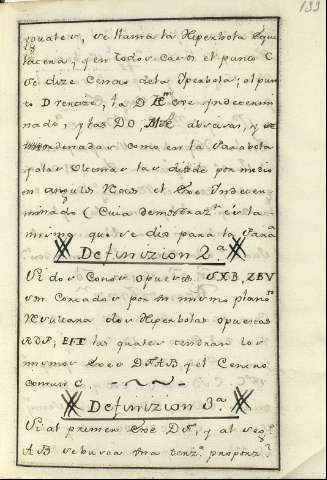 133
iguales, se llama la Hiperbola Equi
latera, y en todos casos el punto C
se dize Centro dela Yperbola; el pun
to D vertize, la DE exe yndeterm
nado, y las DO, abcisas, y
ordenadas como en la Parabola
por medio
en angulos Rectos el Exe Yndeter
minado (Cuia demostraz.n es la
misma que se dio para la Para.a
Definizion 2.a
Si dos Conos opuestos SXB, ZBV
son Cortados por un mismo plano
Resultaran dos Hiperbolas opuestas
RDS, EFT las quales tendran los
mismos Exes DF AB y el Centro
comun C.
Definizion 3.a
Si al primer Exe DF, y al seg.o
AB se busca una terz.a proporz.l